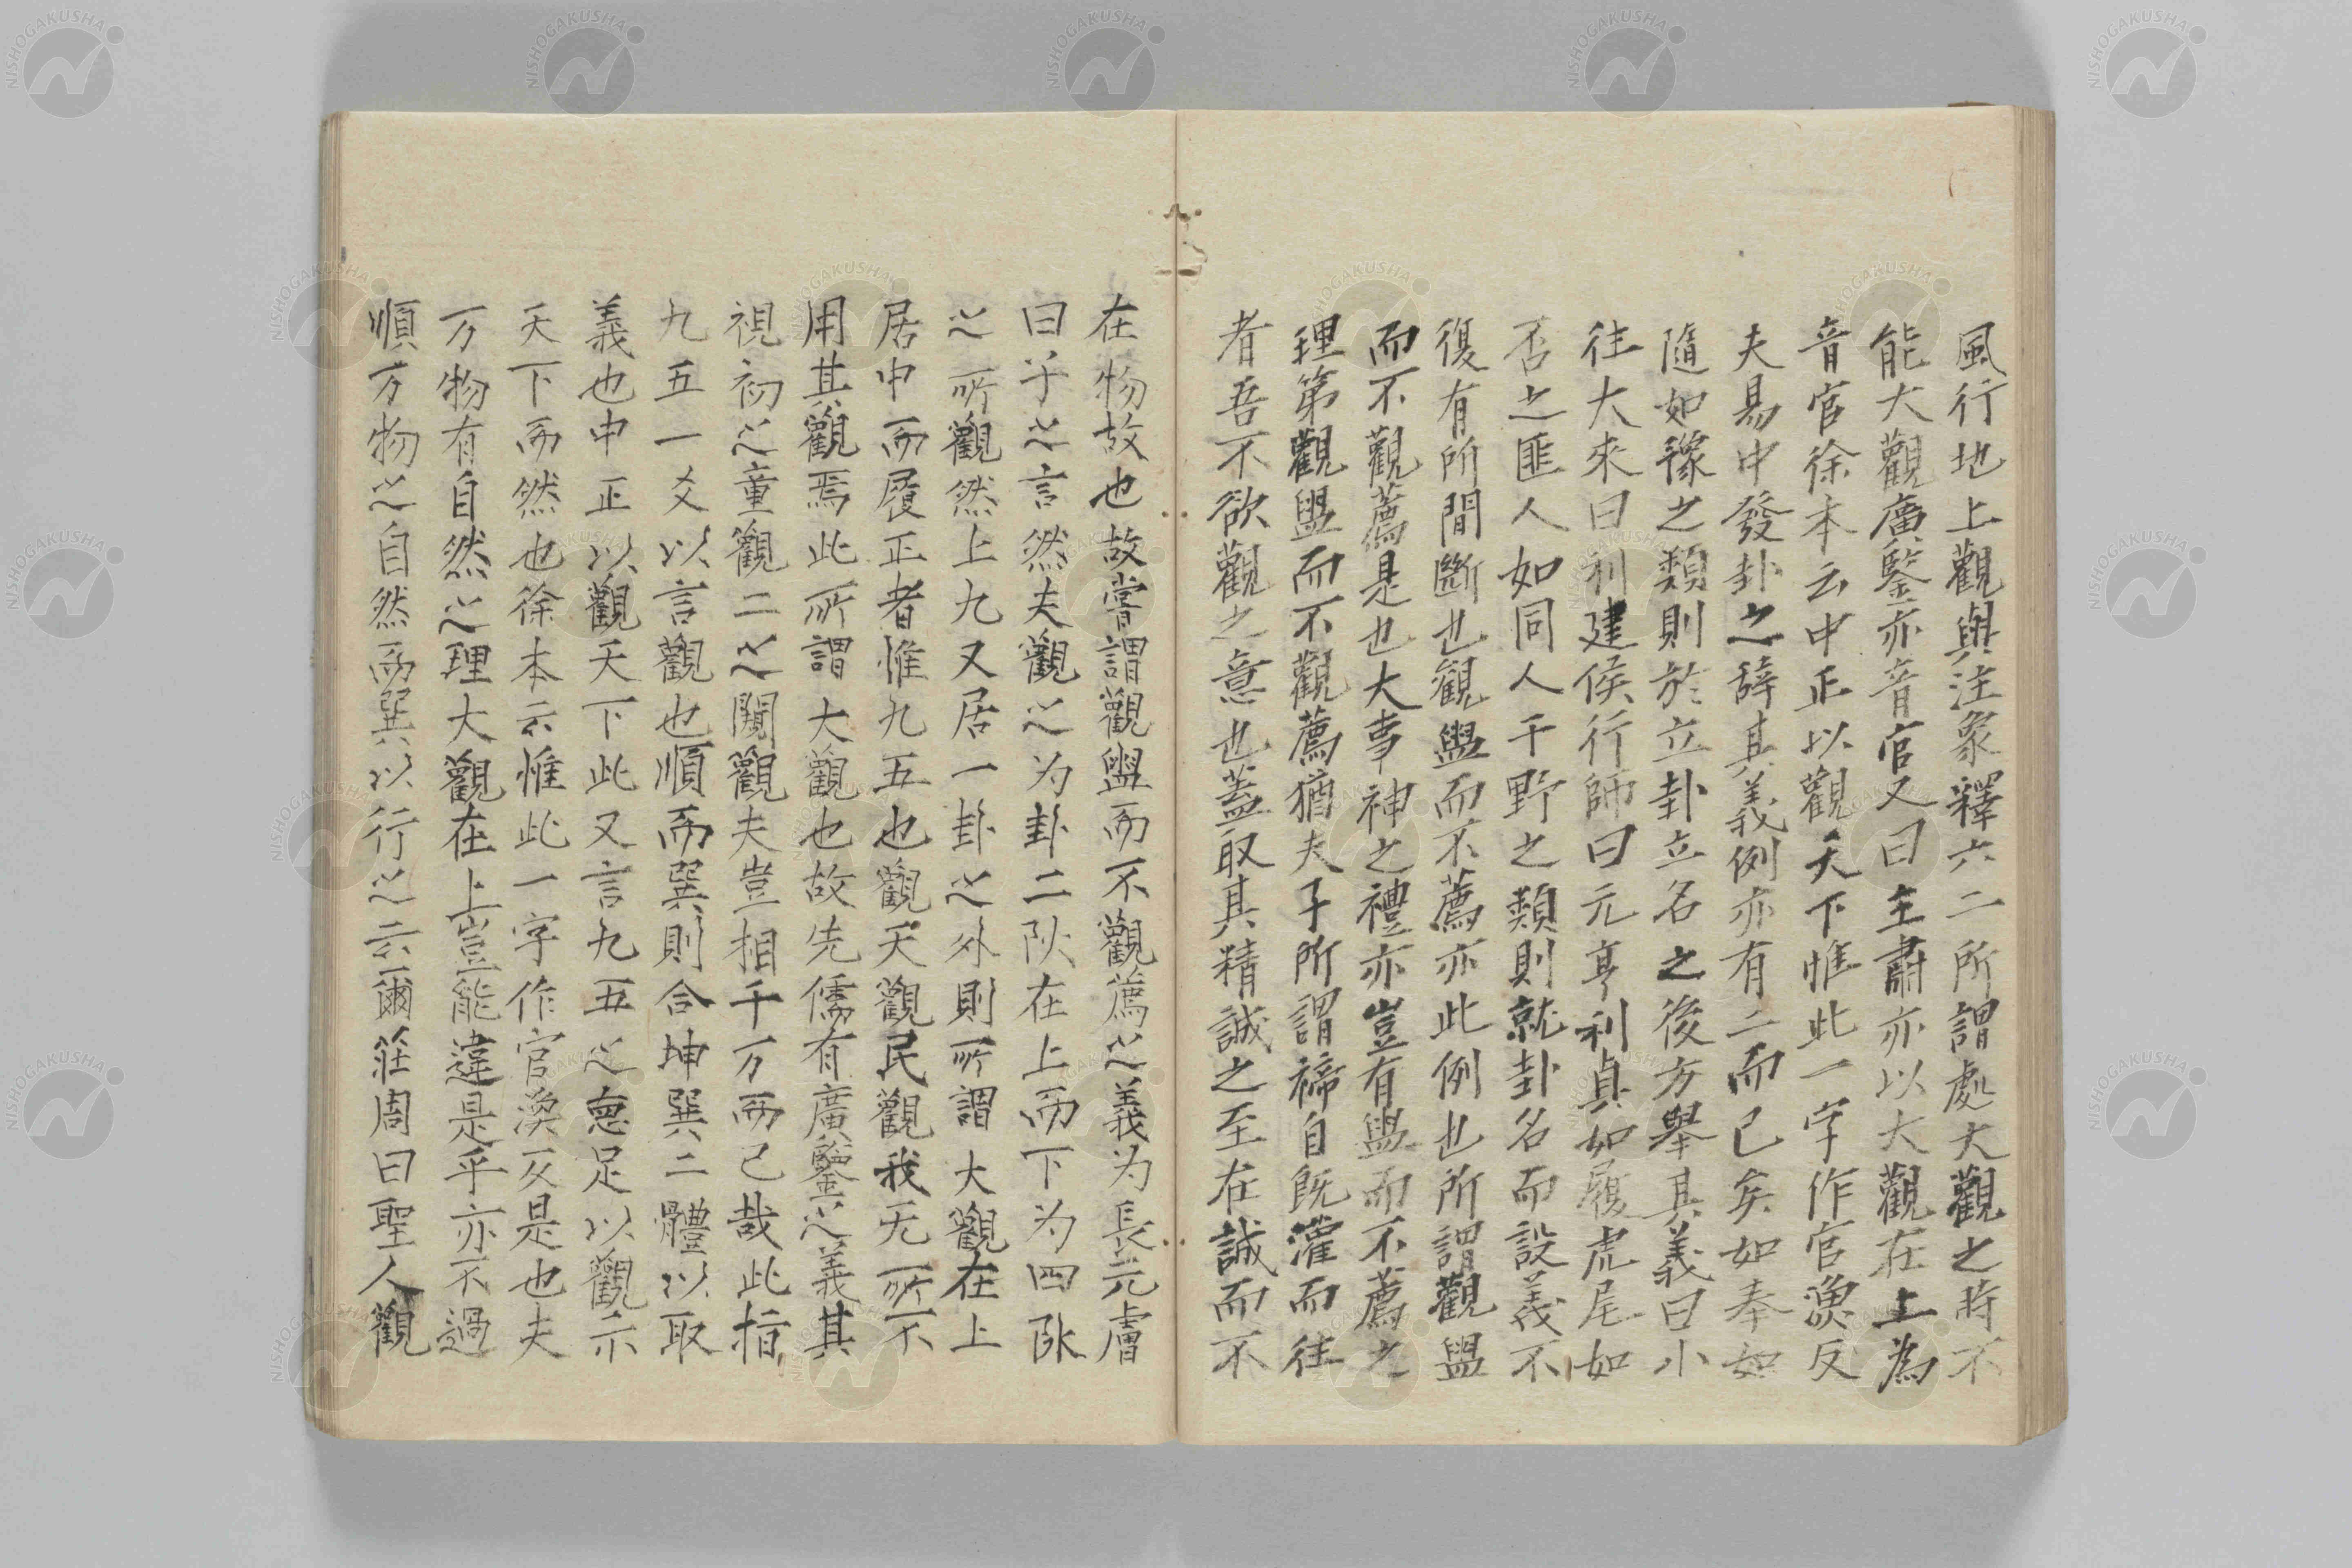 風行地上觀與注象釋六二所謂處大觀之時不
能大觀廣鑒亦音官又曰王肅亦以大觀在上為
音官徐本云中正以觀天下惟此一字作官渙反
夫易中發卦之辞其義例亦有二而已矣如奉如
隨如豫之類則於立卦立名之後方舉其義曰小
往大來曰利建侯行師曰元亨利貞如履虎尾如
否之匪人如同人于野之類則就卦名而設義不
復有所間斷也觀盥而不薦亦此例也所謂觀盥
而不觀薦是也大事神之禮亦豈有盥而不薦之
理第觀盥而不觀薦猶夫子所謂禘自既灌而往
者吾不欲觀之意也蓋取其精誠之至在誠而不
在物故也故嘗謂觀盥而不觀薦之義为長元膚
曰乎之言然夫觀之为卦二阦在上而下为四阥
之所觀然上九又居一卦之外則所謂大觀在上
居中而履正者惟九五也觀天觀民觀我无所不
用其觀焉此所謂大觀也故先儒有廣鑒之義其
視初之童觀二之闚觀夫豈相千万而已哉此指
九五一爻以言觀也順而巽則合坤巽二體以取
義也中正以觀天下此又言九五之悳足以觀示
天下而然也徐本云惟此一字作官渙反是也夫
万物有自然之理大觀在上豈能違是乎亦不過
順万物之自然而巽以行之云爾莊周曰聖人觀